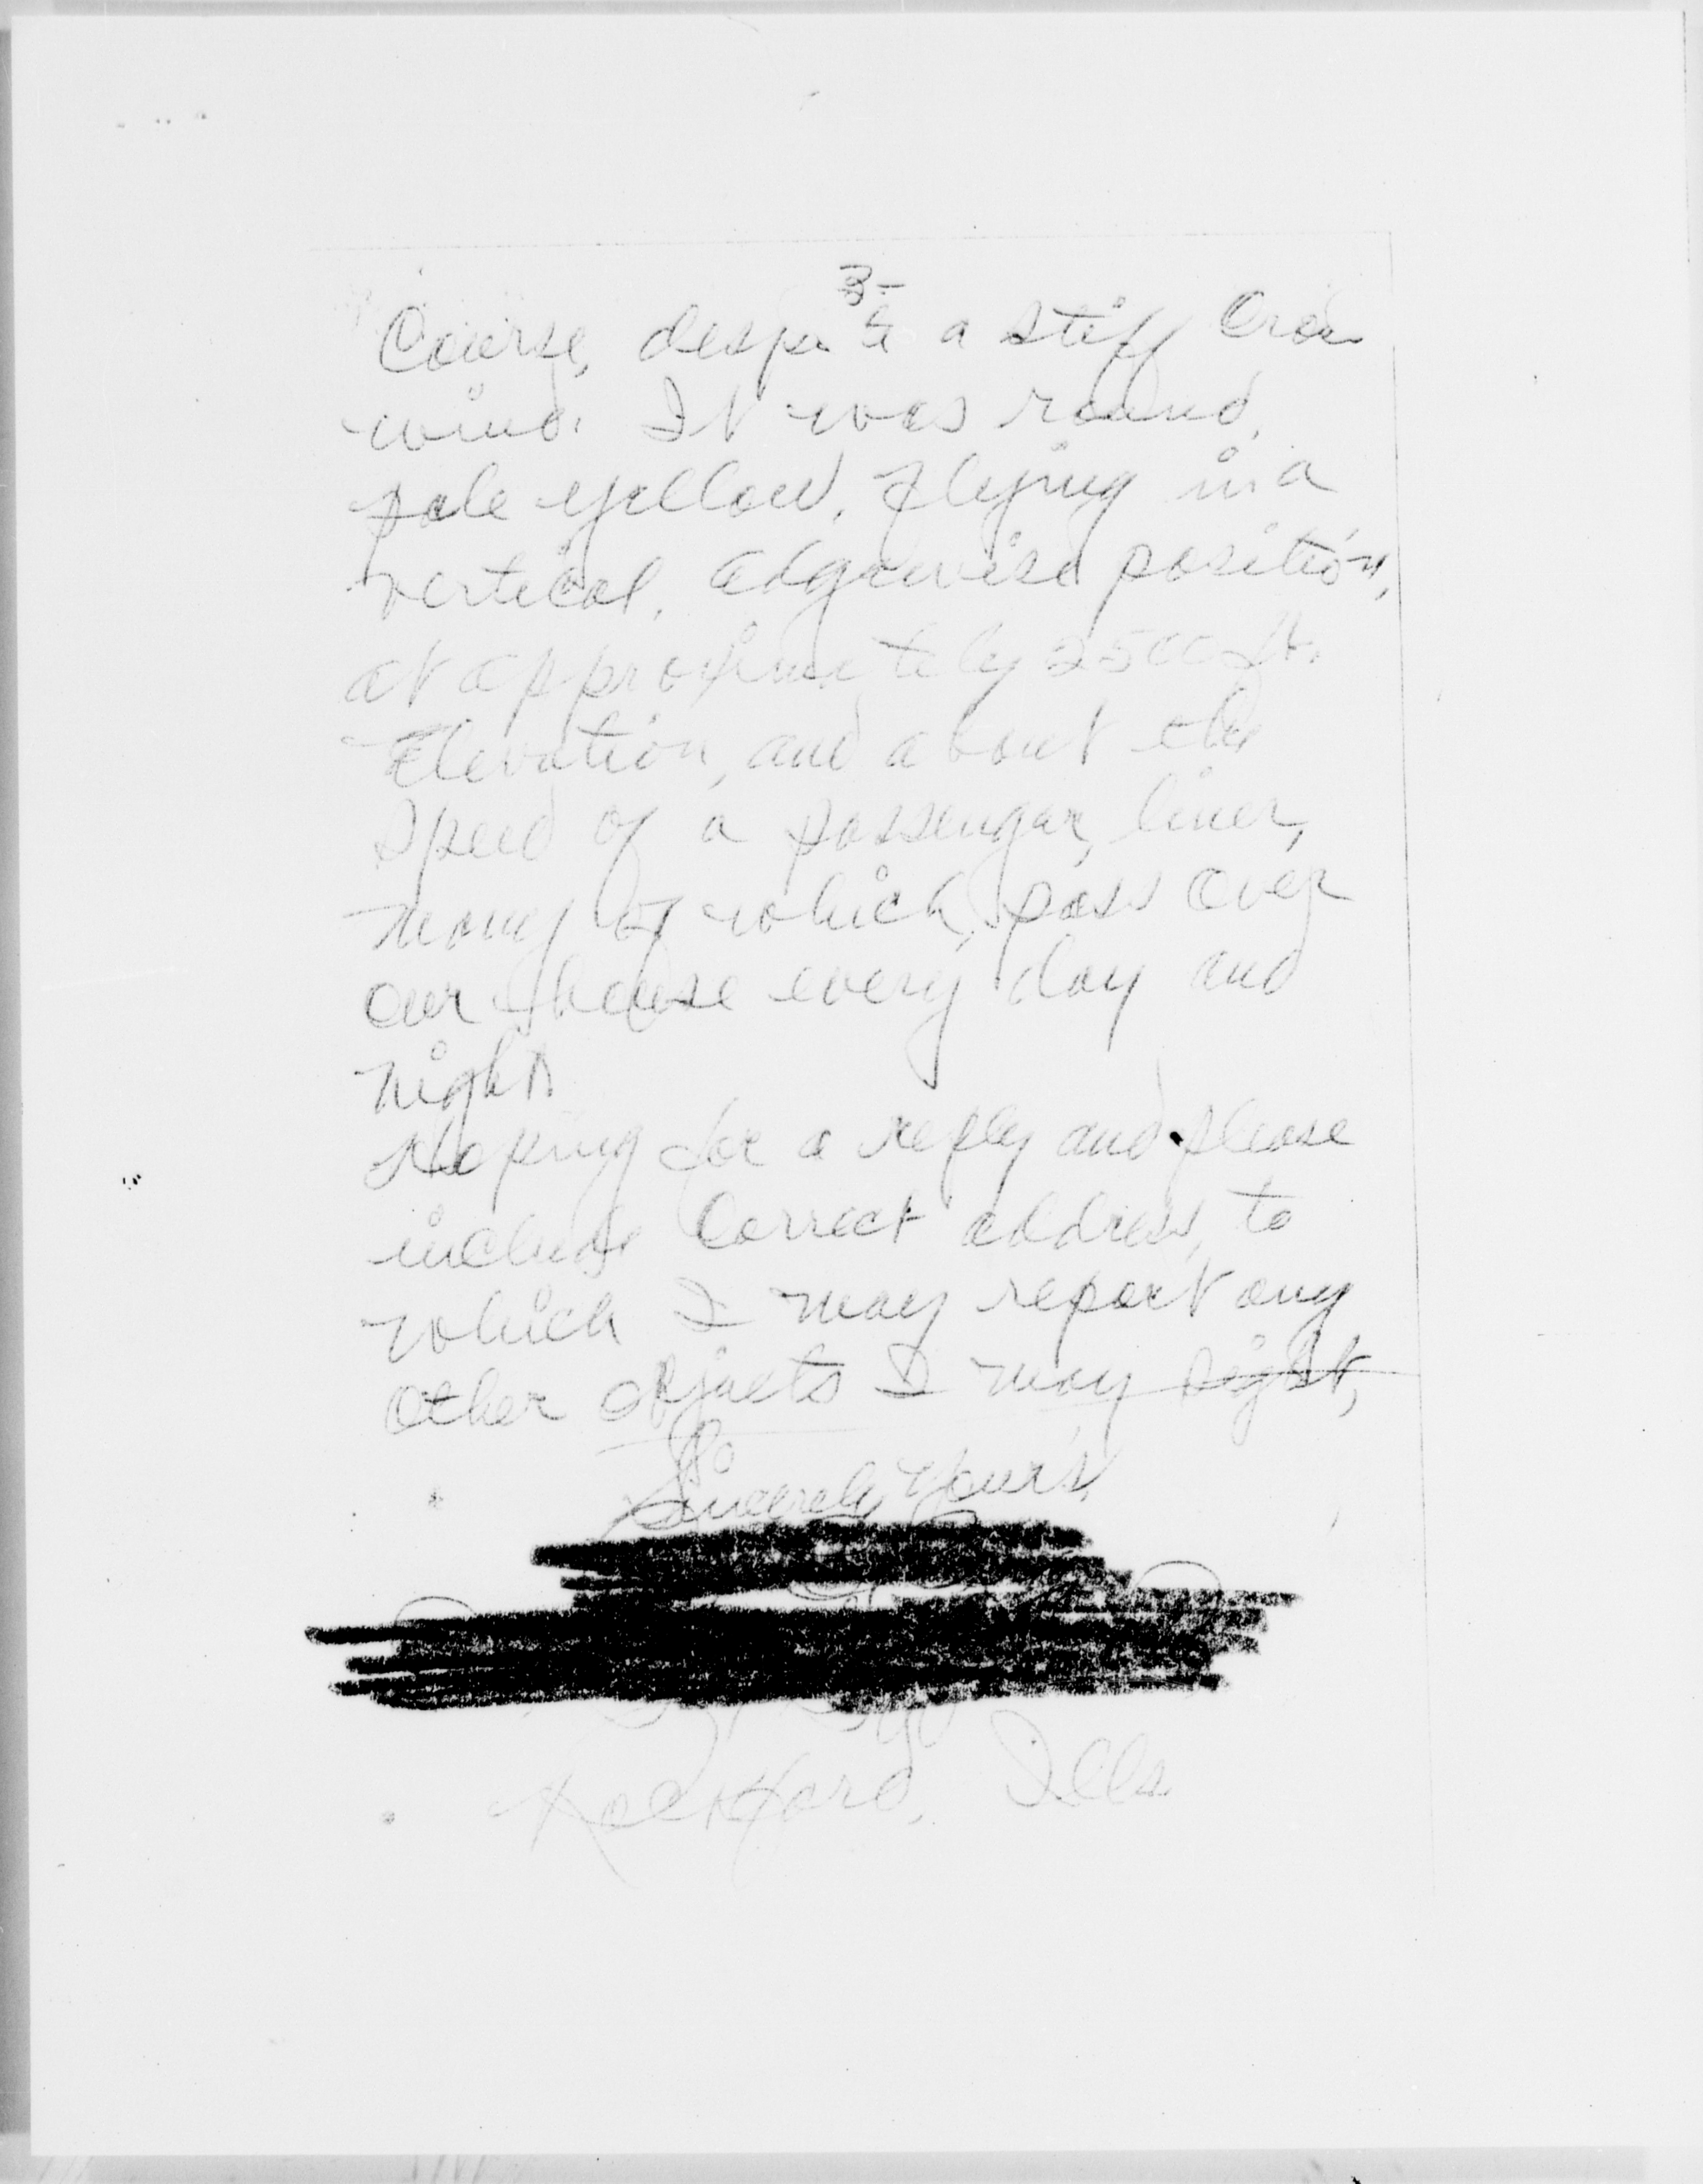 3-
Course, despite a stiff Cross
wind. It was round,
pale yellow, flying in a
vertical, edgewise position,
at approximately 2500 ft.
Elevation, and about the
speed of a passenger, liner,
many of which, pass over
our house every day and
night.
Hoping for a reply and please
include Correct address, to
which I may report any
other objects I may sight,
Sincerely Your's,
Rockford, Ills.